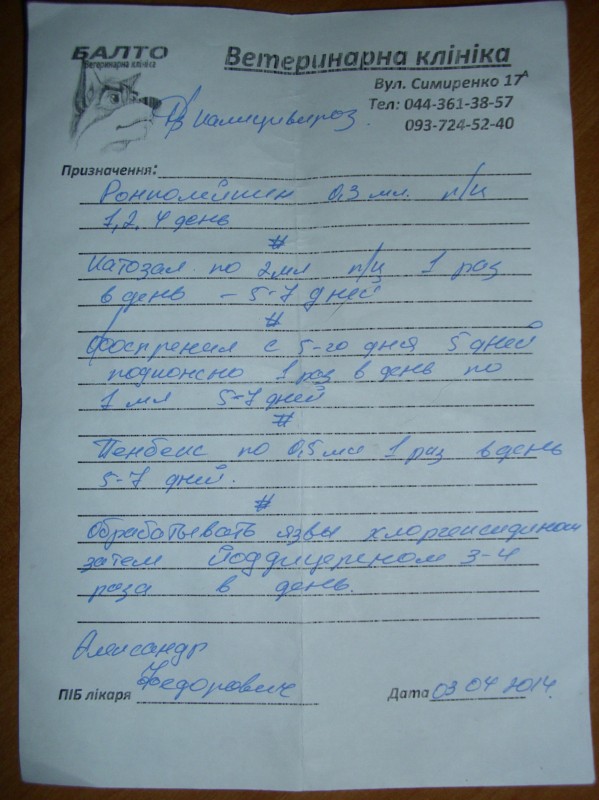 БАЛТО
Ветеринарна клініка
Ветеринарна клініка
Вул. Симиренко 17А
Тел: 044-361-38-57
093-724-52-40
Дз калицивироз.
Призначення:
Ронколейкин 0,3 мл п/к
1, 2, 4 день
#
Катозал по 2 мл п/к 1 раз
в день – 5-7 дней
#
Фоспренил с 5-го дня 5 дней
подкожно 1 раз в день по
1 мл 5-7 дней
#
Пенбекс по 0,5 мл 1 раз в день
5-7 дней.
#
Обрабатывать язвы хлоргексидином
затем йоддицерином 3-4
раза в день.
Александр
Федорович
ПІБ лікаря
Дата 03 04 2014